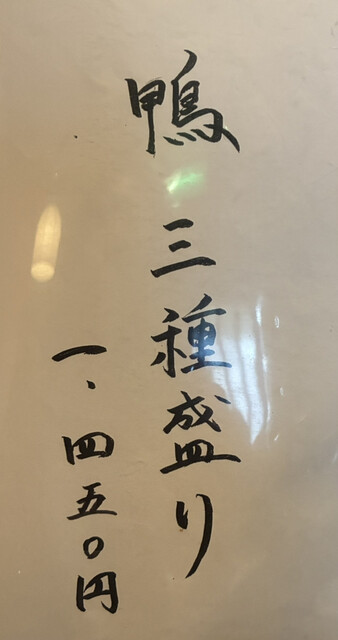 鴨三種盛り
一、四五〇円